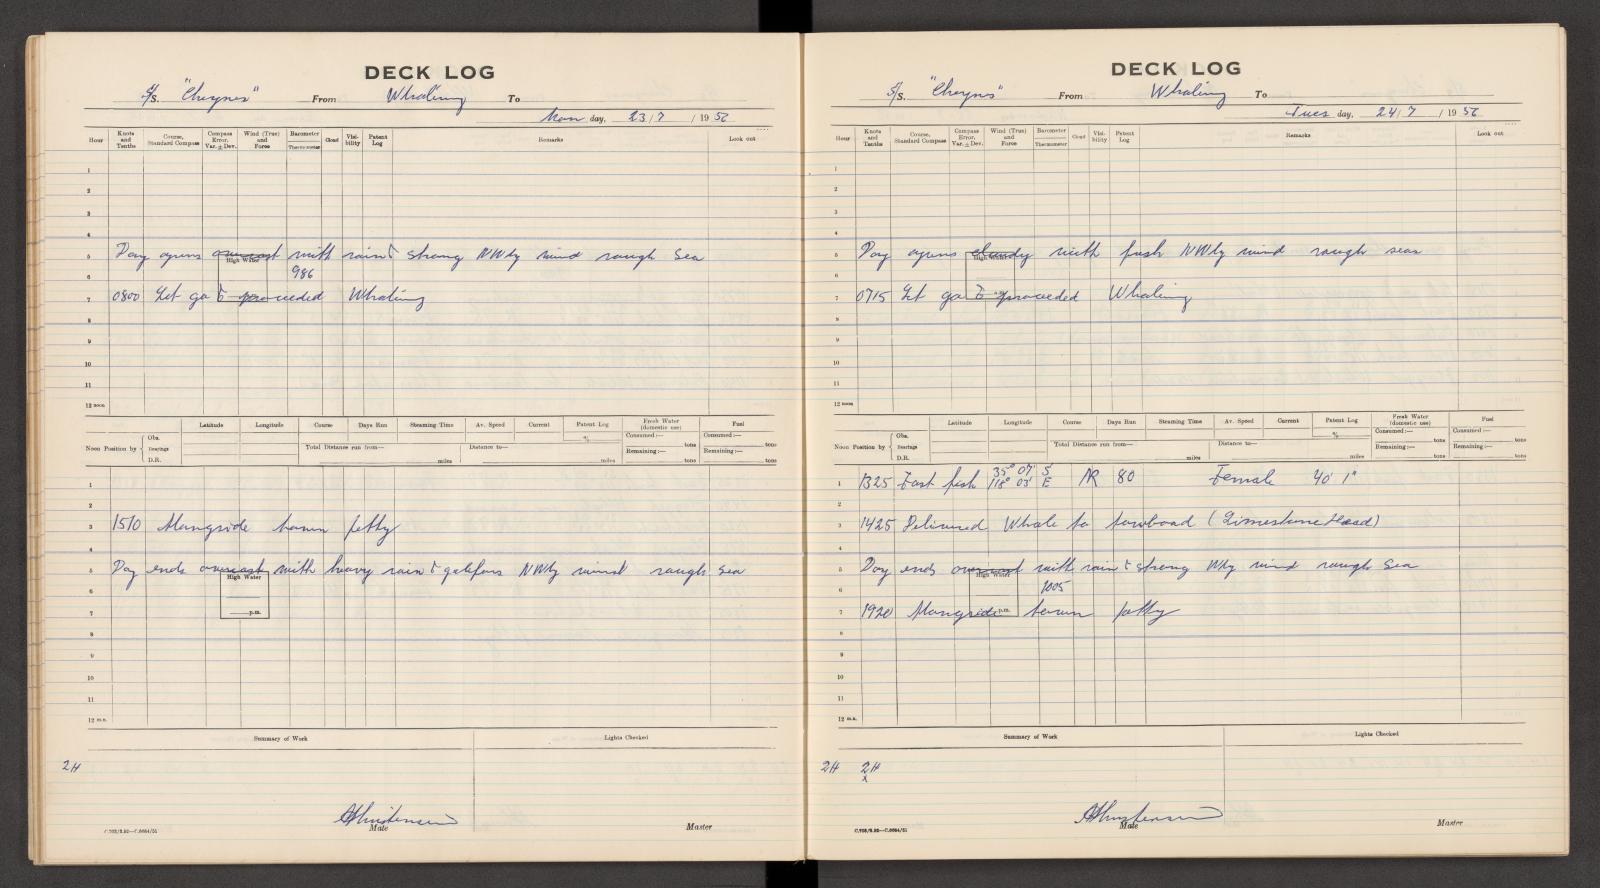 DECK LOG
S/S. "Cheynes" From Whaling To
Mon day, 23/7 / 19 56
Hour
Knots and Tenths
Course, Standard Compass
Compass Error, Var. ± Dev.
Wind (True) and Force
Barometer
Thermometer
Cloud
Visibility
Patent Log
Remarks
Look out
1
2
3
4
5 Day opens overcast with rain & strong NWly wind rough sea
High Water
6 986
7 0800 Let go & proceeded Whaling
8
9
10
11
12 noon
Noon Position by { Obs. Bearings D.R.
Latitude
Longitude
Course
Days Run
Steaming Time
Av. Speed
Current
Patent Log
%
Fresh Water (domestic use)
Fuel
Total Distance run from— miles
Distance to— miles
Consumed :— tons
Remaining :— tons
Consumed :— tons
Remaining :— tons
1
2
3 1510 Alongside town jetty
4
5 Day ends overcast with heavy rain & gale force NWly wind rough sea
High Water
6
7 p.m.
8
9
10
11
12 m.n.
Summary of Work
Lights Checked
2H
Mate
Master
C.702/8.52—C.6664/51
DECK LOG
S/S. "Cheynes" From Whaling To
Tues day, 24/7 / 19 56
Hour
Knots and Tenths
Course, Standard Compass
Compass Error, Var. ± Dev.
Wind (True) and Force
Barometer
Thermometer
Cloud
Visibility
Patent Log
Remarks
Look out
1
2
3
4
5 Day opens cloudy with fresh NWly wind rough seas
High Water
6
7 0715 Let go & proceeded Whaling
8
9
10
11
12 noon
Noon Position by { Obs. Bearings D.R.
Latitude
Longitude
Course
Days Run
Steaming Time
Av. Speed
Current
Patent Log
%
Fresh Water (domestic use)
Fuel
Total Distance run from— miles
Distance to— miles
Consumed :— tons
Remaining :— tons
Consumed :— tons
Remaining :— tons
1 1325 Fast fish 35° 07' S 118° 03' E NR 80 Female 40' 1"
2
3 1425 Delivered Whale to towboat (Limestone Head)
4
5 Day ends overcast with rain & strong Wly wind rough sea
High Water
6 1005
7 1920 Alongside town jetty
p.m.
8
9
10
11
12 m.n.
Summary of Work
Lights Checked
2H 2H
x
Mate
Master
C.702/8.52—C.6664/51